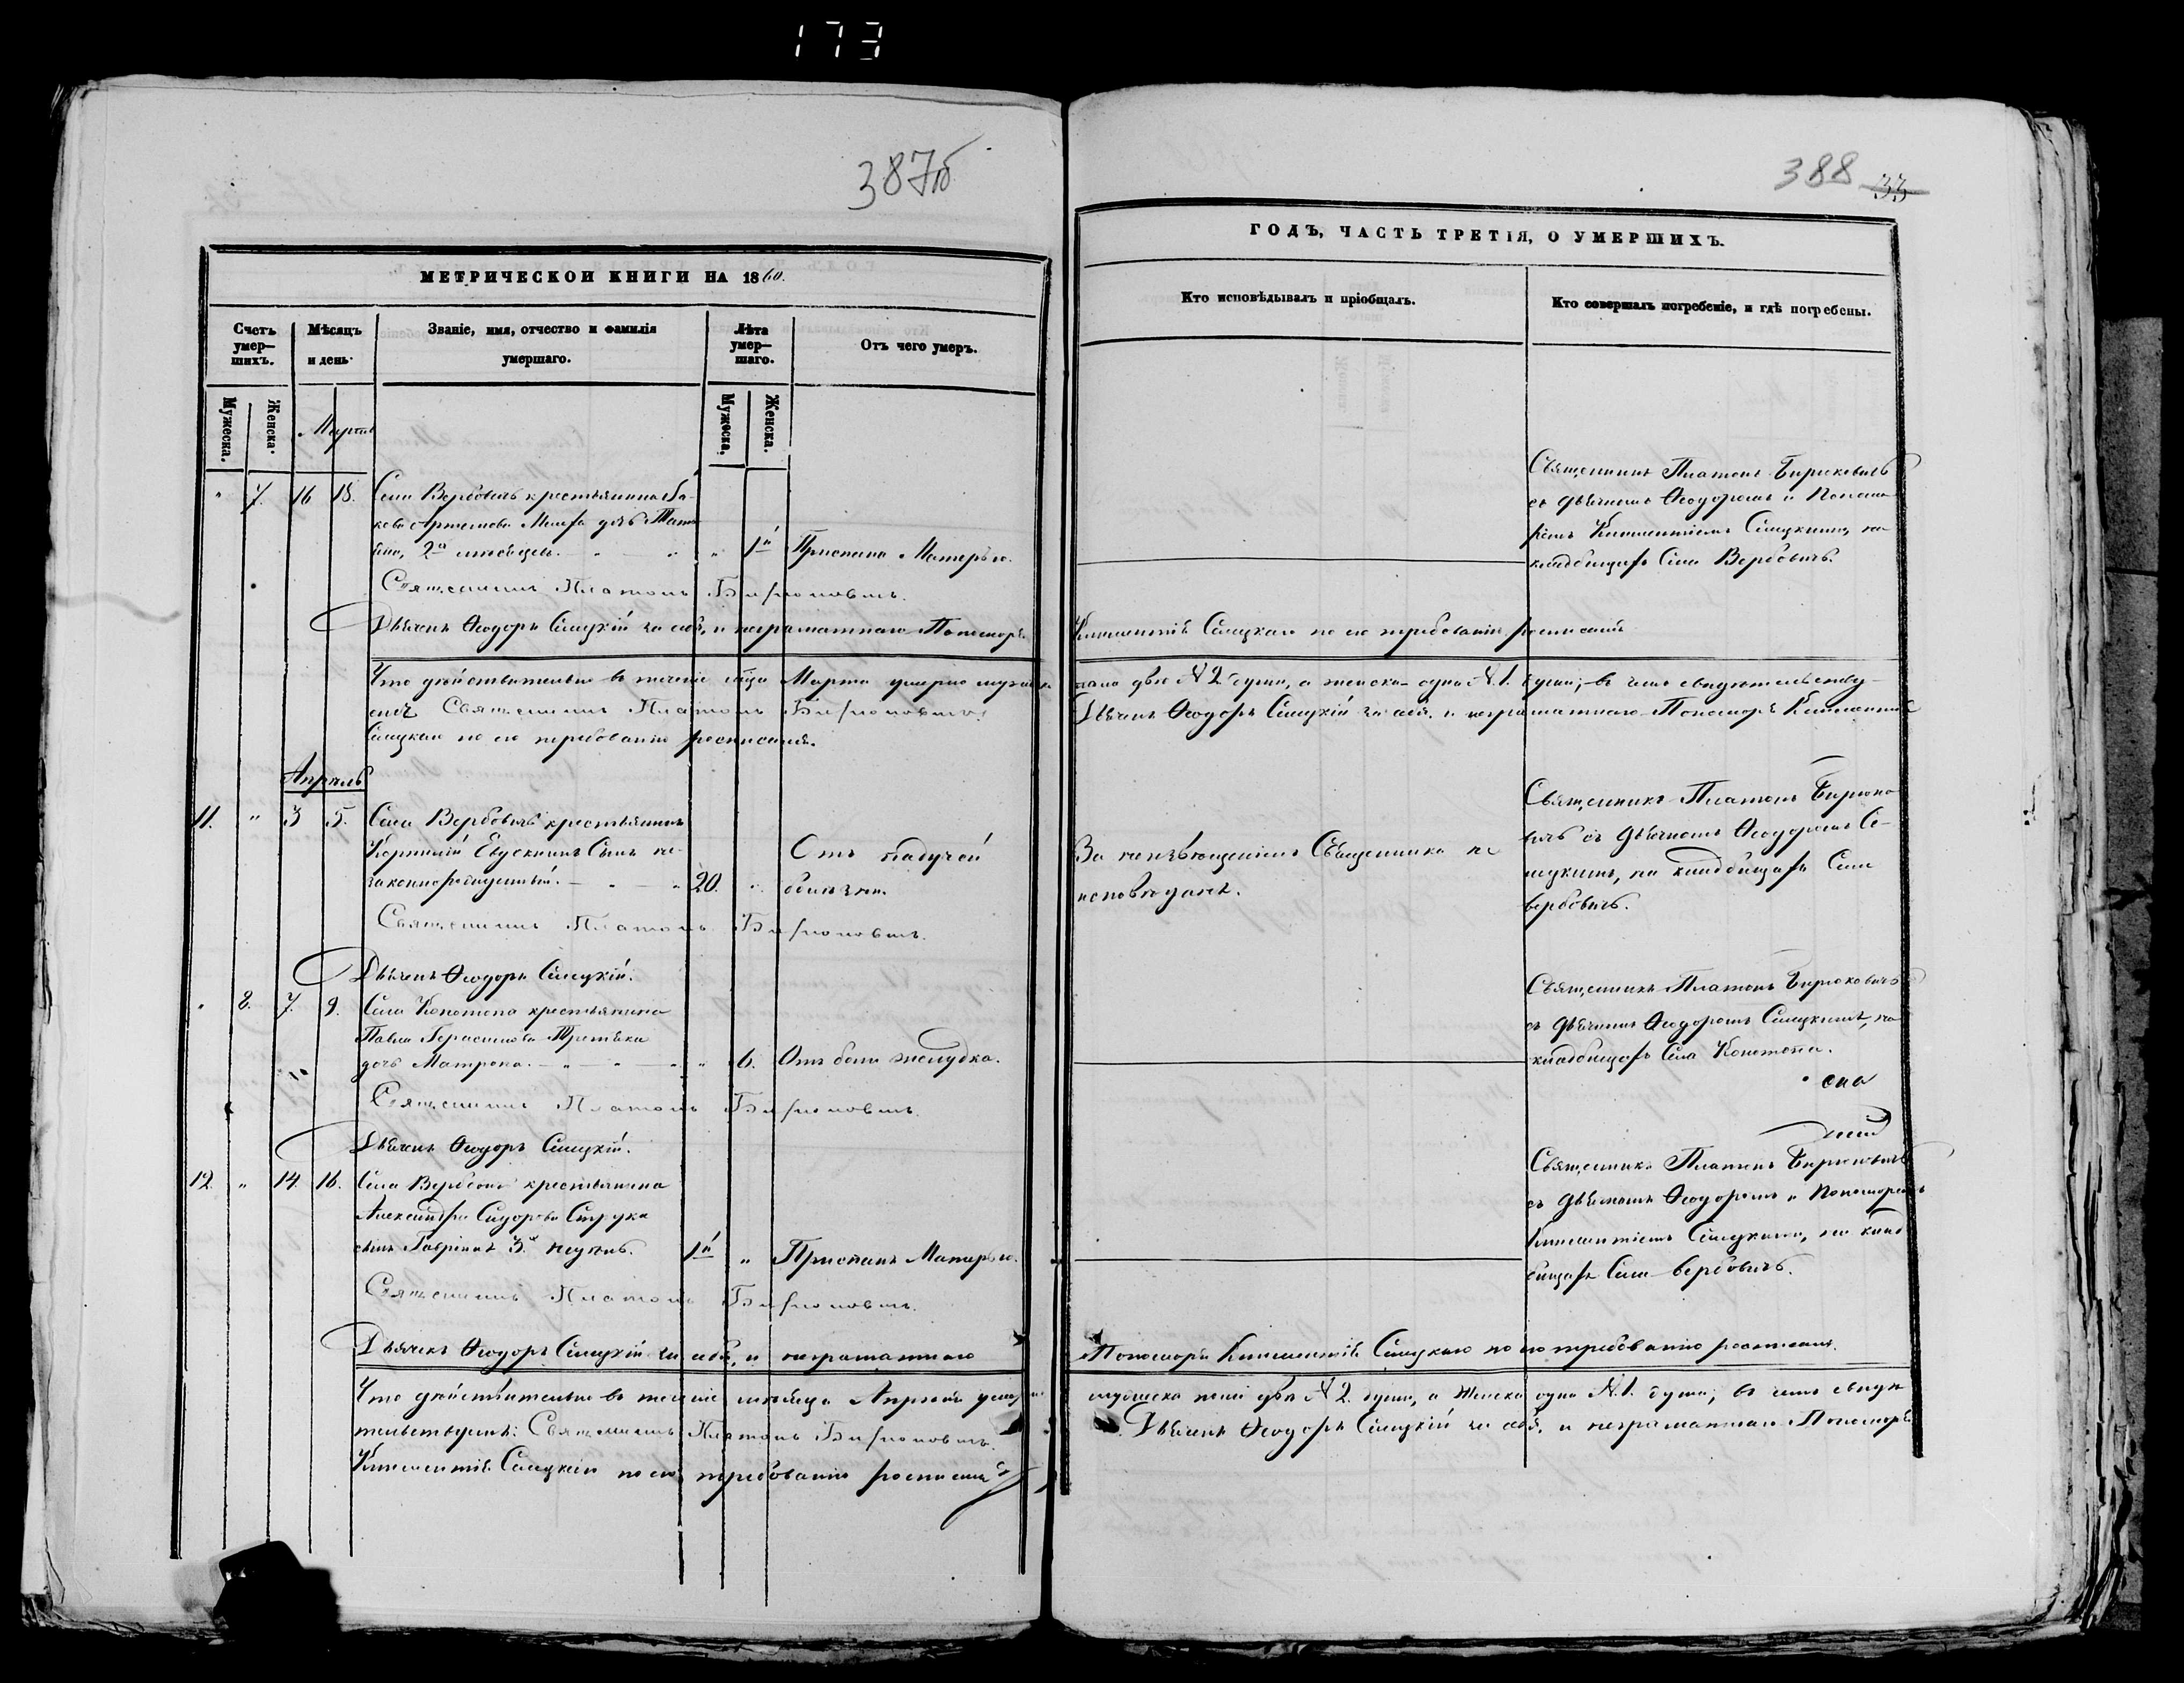 173
387об
388 33
МЕТРИЧЕСКОЙ КНИГИ НА 1860.
ГОДЪ, ЧАСТЬ ТРЕТІЯ, О УМЕРШИХЪ.
Счетъ умер-шихъ.
Мѣсяцъ и день.
Званіе, имя, отчество и фамилія умершаго.
Лѣта умер-шаго.
Отъ чего умеръ.
Кто исповѣдывалъ и пріобщалъ.
Кто совершалъ погребеніе, и гдѣ погребены.
Мужеска.
Женска.
Мужеска.
Женска.
Мартъ
" 7. 16 18. Села Вербовичъ крестьянина Іа-
кова Артемова дочь
2а " 1й Приспана Матерью.
Священникъ Платонъ Бирюковичъ
съ дьячкомъ Ѳеодоромъ и Понома-
ремъ Климентіемъ Сѣлицкими, на
кладбищѣ Села Вербовичъ.
Священникъ Платонъ Бирюковичъ.
Дьячекъ Ѳеодоръ Сѣлицкій за себя, и неграматнаго Пономаря
Климентія Сѣлицкаго по его требованію росписался
Что дѣйствительно въ теченіе мѣсяца Марта умерло мужеска
пола двѣ №2 души, а женска одна №1. душа; въ чемъ свидѣтельству-
емъ Священникъ Платонъ Бирюковичъ.
Дьячекъ Ѳеодоръ Сѣлицкій за себя, и неграматнаго Пономаря Климентія
Сѣлицкаго по его требованію росписался.
Апрѣль
11. " 3 5. Села Вербовичъ крестьянинъ
Корнилій Евдокіинъ Сынъ не-
законнорожденный. 20. " Отъ падучей
болѣзни.
За неизвѣщеніемъ Священника не
исповѣданъ.
Священникъ Платонъ Бирюко-
вичъ съ дьячкомъ Ѳеодоромъ Сѣ-
лицкимъ, на кладбищѣ Села
Вербовичъ.
Священникъ Платонъ Бирюковичъ.
Дьячекъ Ѳеодоръ Сѣлицкій.
" 8. 7. 9. Села Конотопа крестьянина
Павла Герасимова Третьяка
дочь Матрона. " 6. Отъ боли желудка.
Священникъ Платонъ Бирюковичъ
съ дьячкомъ Ѳеодоромъ Сѣлицкимъ, на
кладбищѣ Села Конотопа.
Священникъ Платонъ Бирюковичъ.
Дьячекъ Ѳеодоръ Сѣлицкій.
12. " 14. 16. Села Вербовичъ крестьянина
Александра Сидорова Струка
сынъ Гавріилъ 3х недѣль. 1й " Приспанъ Матерью.
Священникъ Платонъ Бирюковичъ
съ дьячкомъ Ѳеодоромъ и Пономаремъ
Климентіемъ Сѣлицкими, на клад-
бищѣ Села Вербовичъ.
Священникъ Платонъ Бирюковичъ.
Дьячекъ Ѳеодоръ Сѣлицкій за себя, и неграматнаго
Пономаря Климентія Сѣлицкаго по его требованію росписался.
Что дѣйствительно въ теченіе мѣсяца Апрѣля умерло
мужеска пола двѣ №2. души, а женска одна №1. душа; въ чемъ свидѣ-
тельствуемъ: Священникъ Платонъ Бирюковичъ.
Дьячекъ Ѳеодоръ Сѣлицкій за себя, и неграматнаго Пономаря
Климентія Сѣлицкаго по его требованію росписался